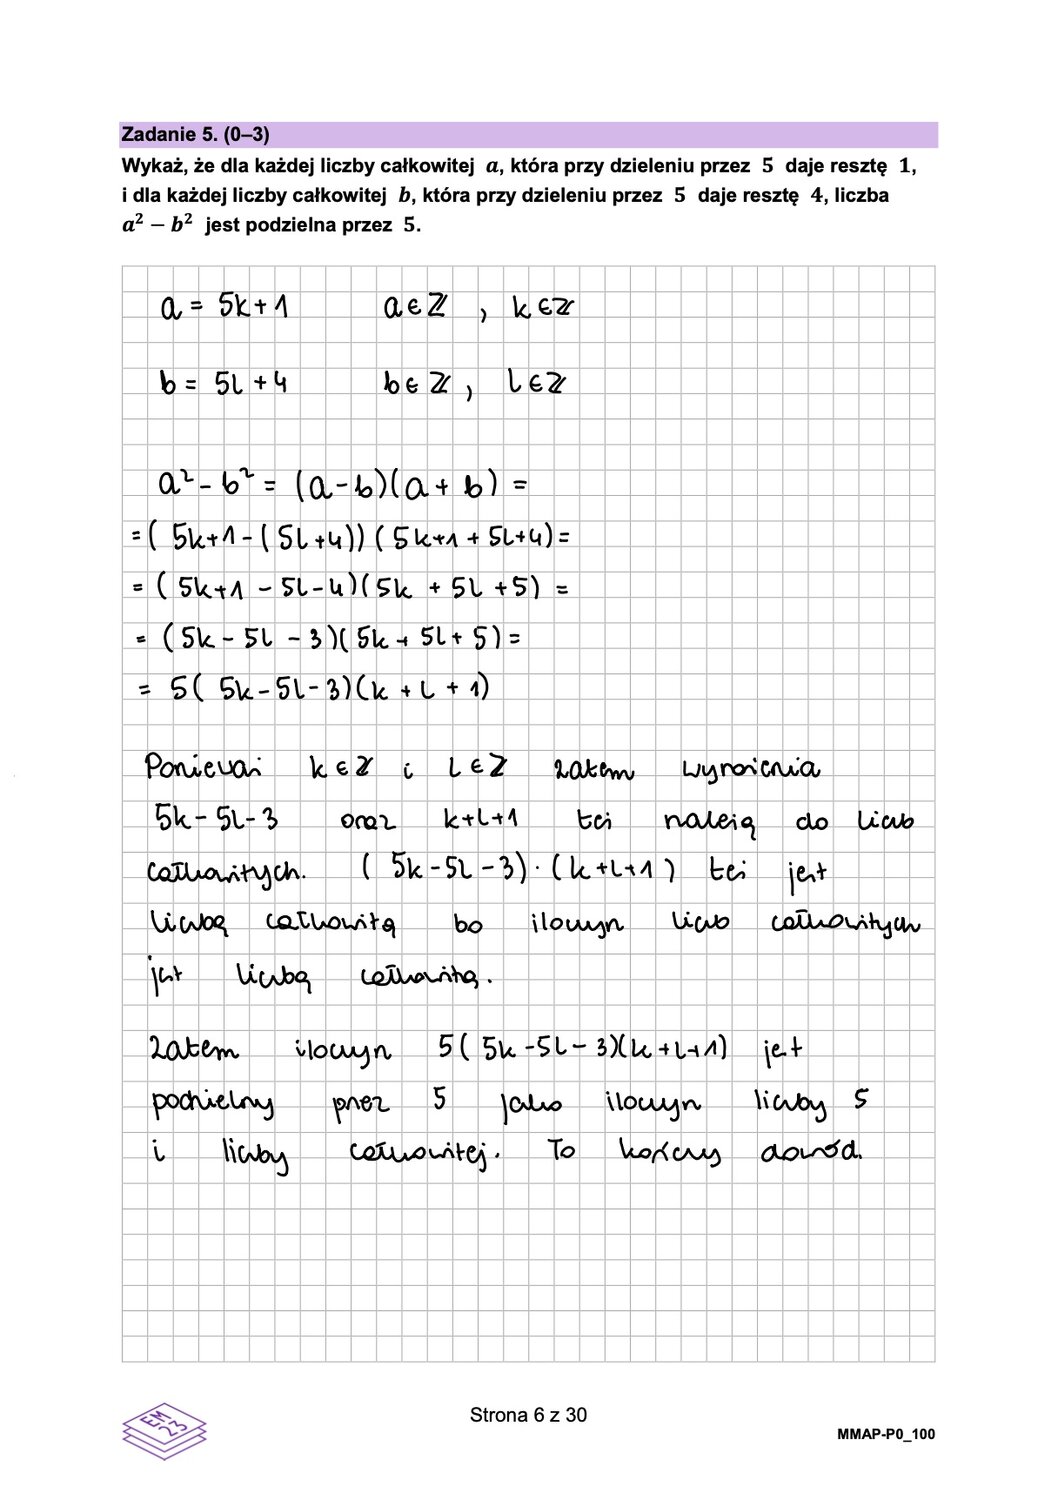 Zadanie 5. (0–3)
Wykaż, że dla każdej liczby całkowitej a, która przy dzieleniu przez 5 daje resztę 1,
i dla każdej liczby całkowitej b, która przy dzieleniu przez 5 daje resztę 4, liczba
a² − b² jest podzielna przez 5.
a = 5k+1 a∈ℤ , k∈ℤ
b = 5l+4 b∈ℤ , l∈ℤ
a² - b² = (a-b)(a+b) =
= (5k+1-(5l+4))(5k+1+5l+4) =
= (5k+1-5l-4)(5k+5l+5) =
= (5k-5l-3)(5k+5l+5) =
= 5(5k-5l-3)(k+l+1)
Ponieważ k∈ℤ i l∈ℤ zatem wyrażenia
5k-5l-3 oraz k+l+1 też należą do liczb
całkowitych. (5k-5l-3)·(k+l+1) też jest
liczbą całkowitą bo iloczyn liczb całkowitych
jest liczbą całkowitą.
Zatem iloczyn 5(5k-5l-3)(k+l+1) jest
podzielny przez 5 jako iloczyn liczby 5
i liczby całkowitej. To kończy dowód.
EM
23
Strona 6 z 30
MMAP-P0_100